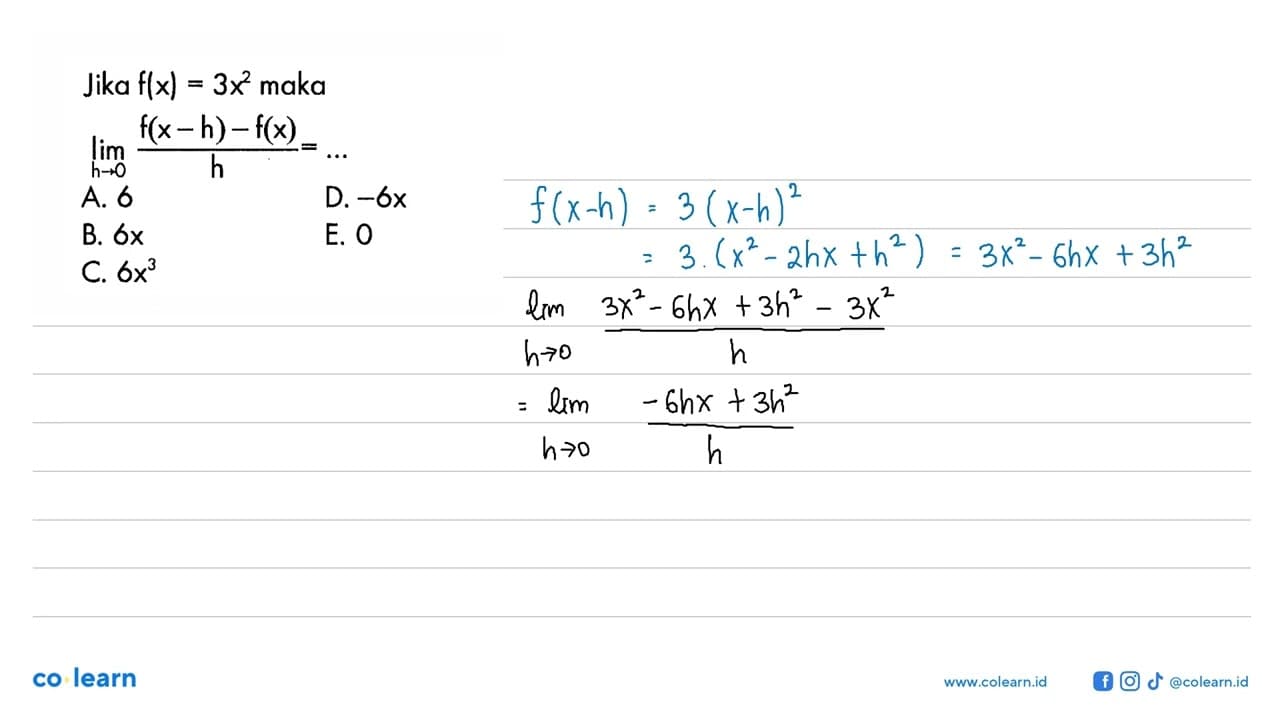 Jika f(x) = 3x² maka
lim h→0 f(x – h) – f(x) / h = ...
A. 6 D. –6x
B. 6x E. 0
C. 6x³
f(x-h) = 3(x-h)²
= 3.(x² - 2hx + h²) = 3x² - 6hx + 3h²
lim h→0 3x² - 6hx + 3h² - 3x² / h
= lim h→0 -6hx + 3h² / h
co learn
www.colearn.id @colearn.id